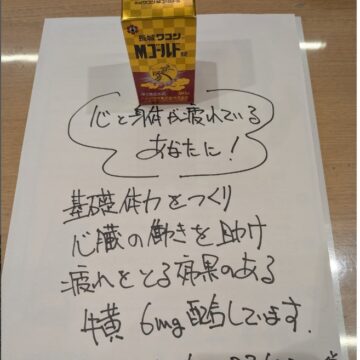 長城ワコン
Mゴールド
心と身体が疲れている
あなたに!
基礎体力をつくり
心臓の働きを助け
疲れをとる効果のある
牛黄 6mg配合しています.